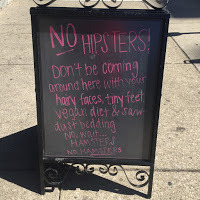 NO HIPSTERS!
Don't be coming
around here with your
hairy faces, tiny feet,
vegan diet & saw-
dust bedding
NO, WAIT...
HAMSTERS
NO HAMSTERS